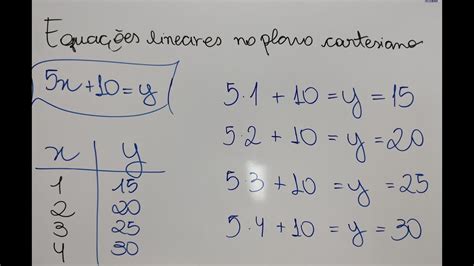 Equações lineares no plano cartesiano
5x+10=y
x y
1 15
2 20
3 25
4 30
5·1+10=y=15
5·2+10=y=20
5·3+10=y=25
5·4+10=y=30